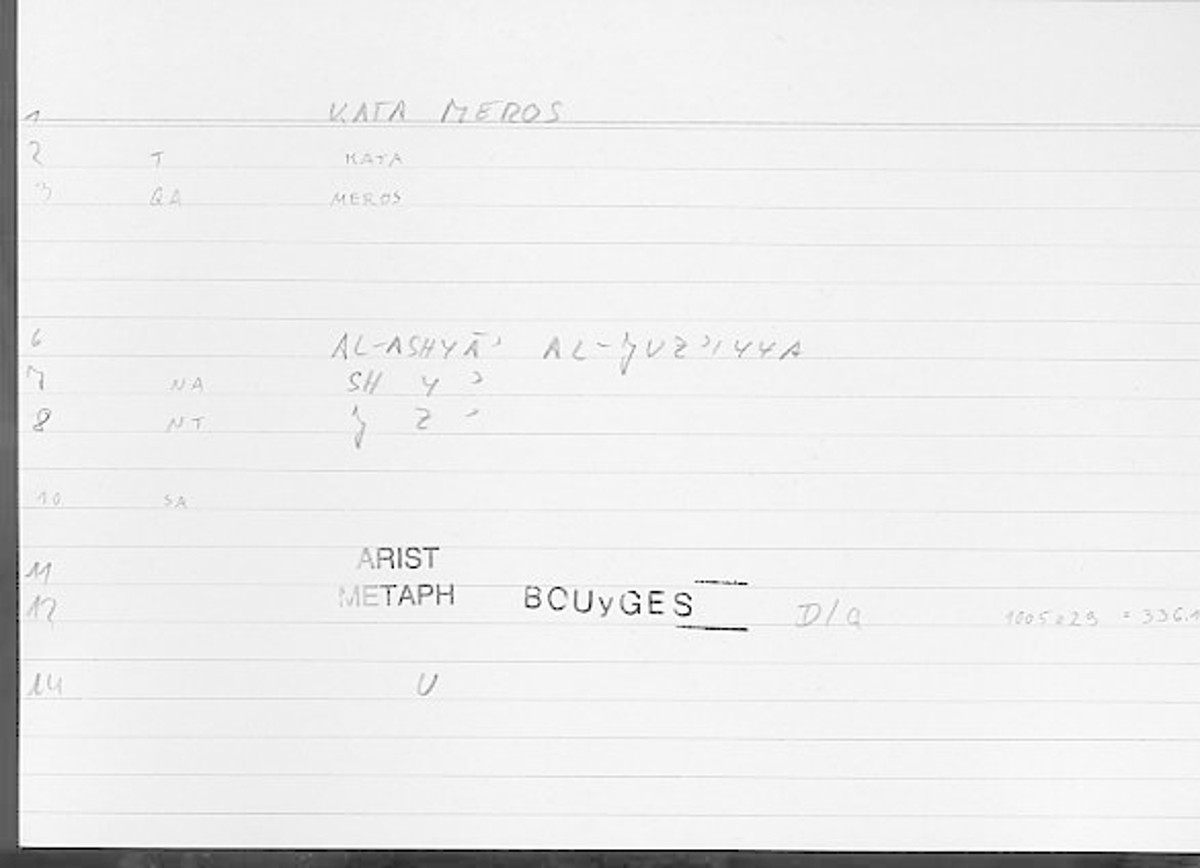 1 KATA MEROS
2 T KATA
3 QA MEROS
6 AL-ASHYĀʾ AL-JUZʾIYYA
7 NA SH Y ʾ
8 NT J Z ʾ
10 SA
11 ARIST
12 METAPH BOUyGES D/G 1005a29 = 336.1
14 U